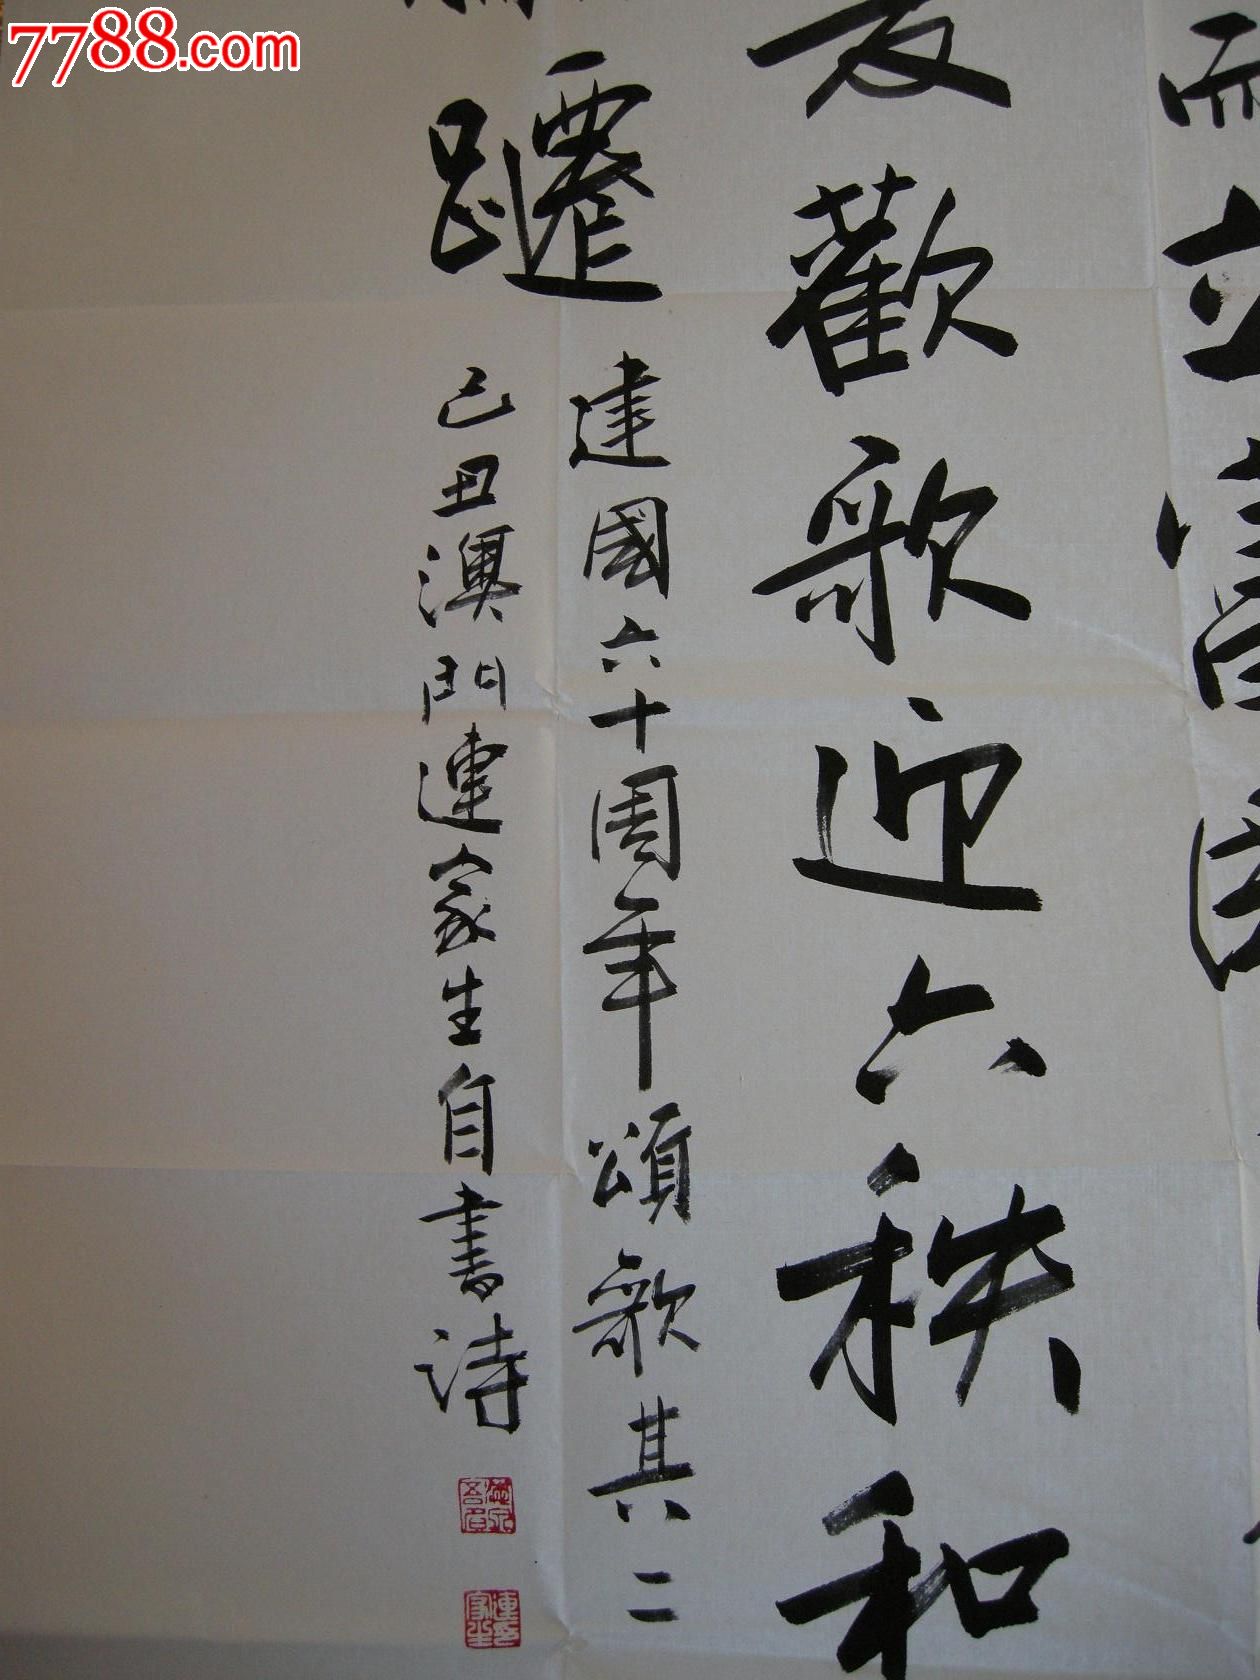 7788.com
而立當國
友歡歌迎六秩和
躚
建國六十周年頌歌其二
己丑澳門連家生自書詩
連家生印